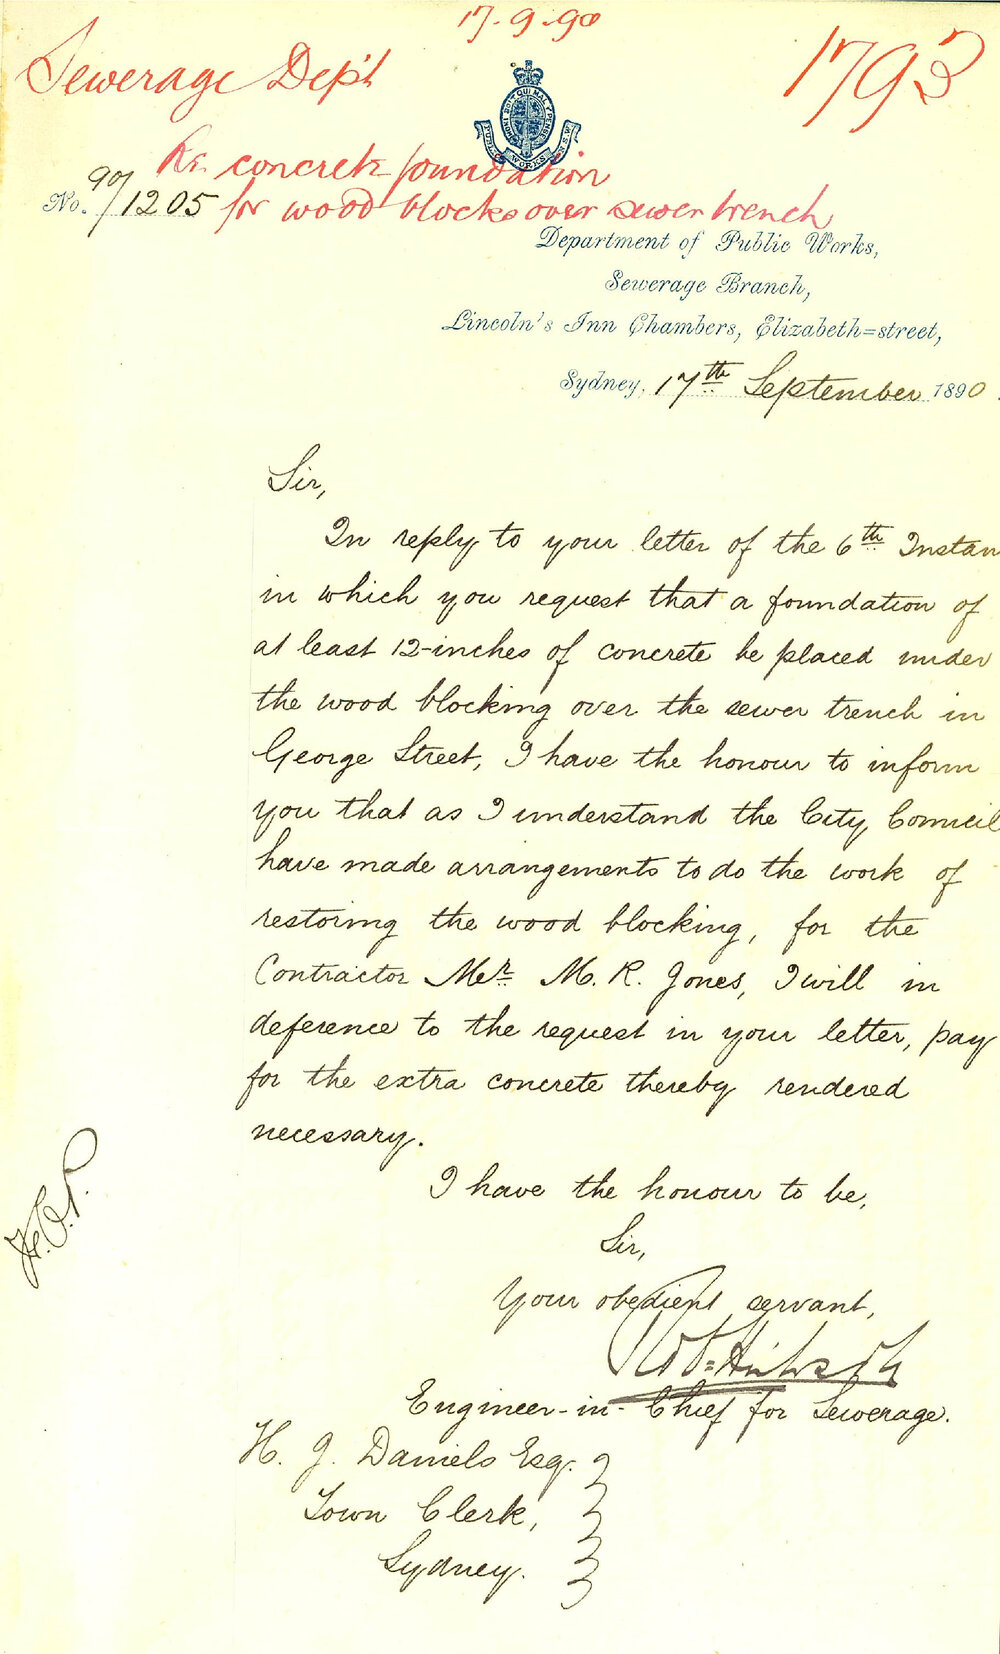 17.9.90
Sewerage Dep't
1793
Re concrete foundation
No. 90/1205 for wood blocks over sewer trench
Department of Public Works,
Sewerage Branch,
Lincoln's Inn Chambers, Elizabeth=street,
Sydney, 17th September 1890.
Sir,
In reply to your letter of the 6th Instan
in which you request that a foundation of
at least 12-inches of concrete be placed under
the wood blocking over the sewer trench in
George Street, I have the honour to inform
you that as I understand the City Council
have made arrangements to do the work of
restoring the wood blocking, for the
Contractor Mr. M. R. Jones, I will in
deference to the request in your letter, pay
for the extra concrete thereby rendered
necessary.
I have the honour to be,
Sir,
Your obedient servant,
Engineer-in-Chief for Sewerage.
H. J. Daniels Esq.
Town Clerk,
Sydney.